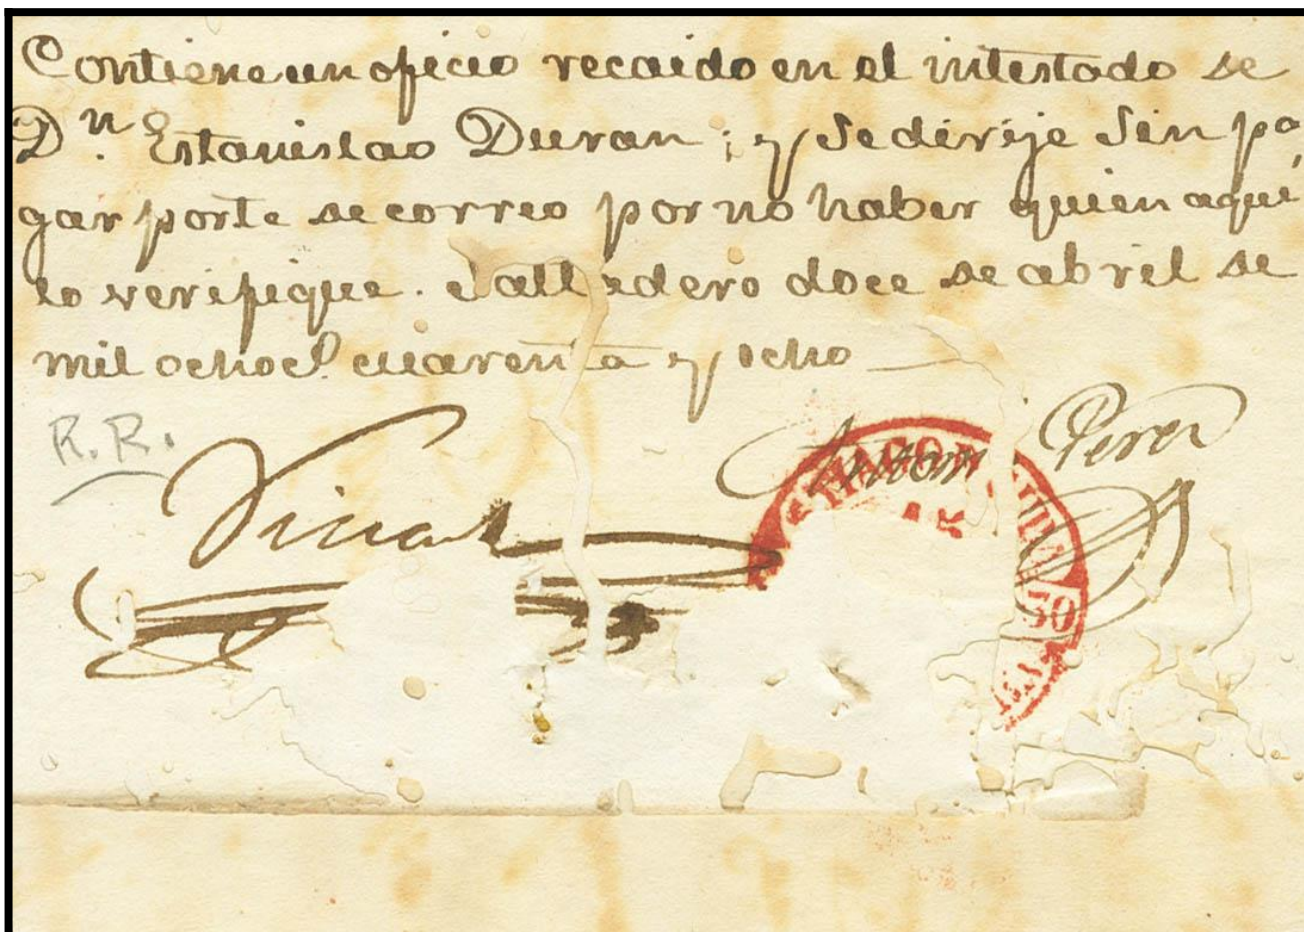 Contiene un oficio recaido en el intestado de
Dn. Estanislao Duran; y se dirije sin pa,
gar porte de correo por no haber quien aqui
lo verifique. doce de abril de
mil ochoct. cuarenta y ocho
R.R.
Antonio Perez
TIAGO
15
50